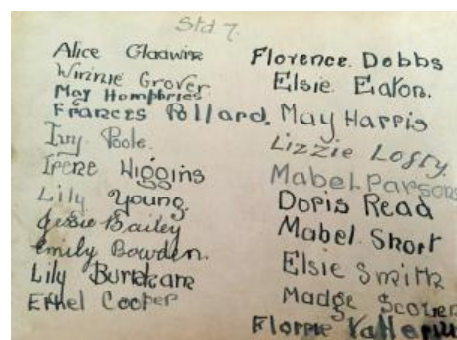 Std 7.
Alice Gladwin
Winnie Grover
May Homphries
Frances Pollard.
Ivy Poole.
Irene Higgins
Lily Young.
Jessie Bailey
Emily Bowden.
Lily Burnham
Ethel Cooper
Florence. Dobbs
Elsie Eaton.
May Harris
Lizzie Lofty.
Mabel. Parsons
Doris Read
Mabel. Short
Elsie Smith
Madge
Florrie